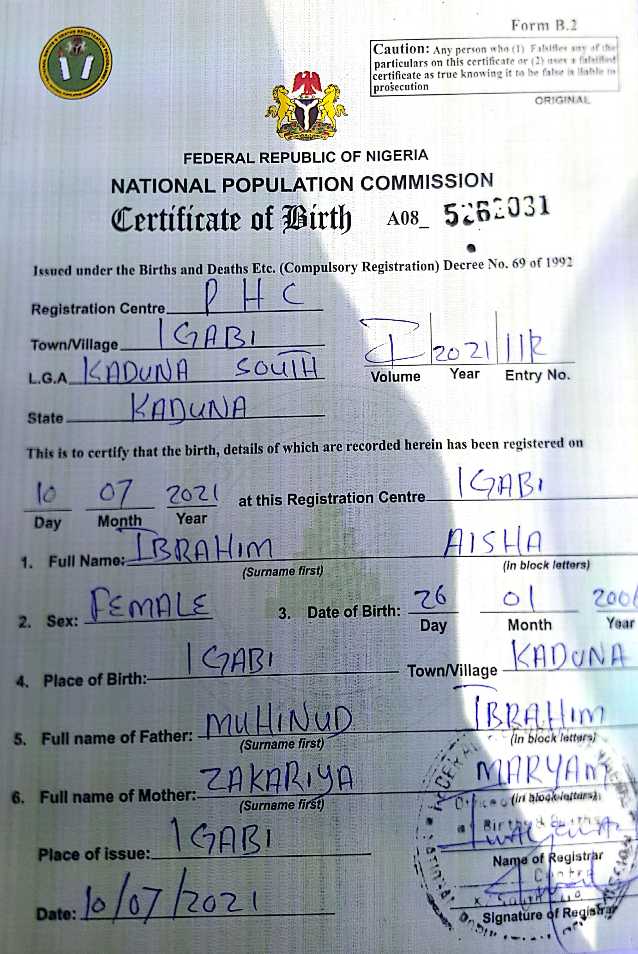 Form B.2
Caution: Any person who (1) Falsifies any of the
particulars on this certificate or (2) uses a falsified
certificate as true knowing it to be false is liable to
prosecution
ORIGINAL
FEDERAL REPUBLIC OF NIGERIA
NATIONAL POPULATION COMMISSION
Certificate of Birth A08_ 5262031
Issued under the Births and Deaths Etc. (Compulsory Registration) Decree No. 69 of 1992
Registration Centre PHC
Town/Village IGABI
L.G.A KADUNA SOUTH
2021
Volume Year Entry No.
State KADUNA
This is to certify that the birth, details of which are recorded herein has been registered on
10 07 2021 at this Registration Centre IGABI
Day Month Year
1. Full Name: IBRAHIM AISHA
(Surname first) (In block letters)
2. Sex: FEMALE 3. Date of Birth: 26 01 2006
Day Month Year
4. Place of Birth: IGABI Town/Village KADUNA
5. Full name of Father: MUHINUD IBRAHIM
(Surname first) (In block letters)
6. Full name of Mother: ZAKARIYA MARYAM
(Surname first) (in block letters)
Place of issue: IGABI
Name of Registrar
Date: 10/07/2021
Signature of Registrar